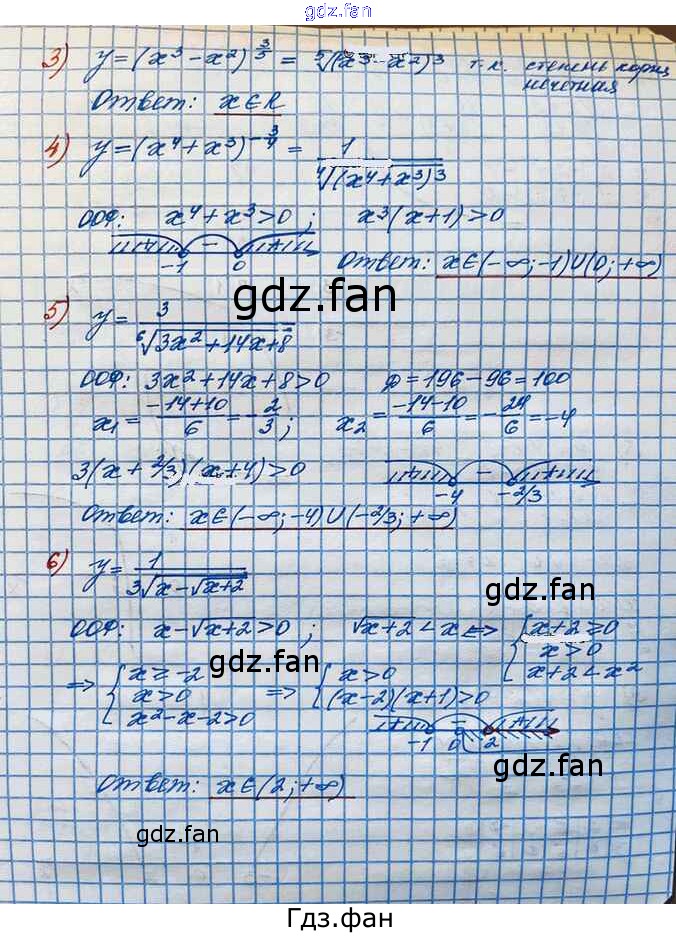 gdz.fan
3) y=(x³-x²)^(3/5) = ⁵√(x³-x²)³ т.к. степень корня
нечетная
Ответ: x∈R
4) y=(x⁴+x³)^(-3/4) = 1/⁴√(x⁴+x³)³
ООФ: x⁴+x³>0 ; x³(x+1)>0
- -1 0
Ответ: x∈(-∞;-1)∪(0;+∞)
gdz.fan
5) y= 3/⁶√(3x²+14x+8)
ООФ: 3x²+14x+8>0 D=196-96=100
x₁= (-14+10)/6 = -2/3; x₂= (-14-10)/6 = -24/6 = -4
3(x+2/3)(x+4)>0 - -4 -2/3
Ответ: x∈(-∞;-4)∪(-2/3;+∞)
6) y= 1/3√(x-√(x+2))
gdz.fan
ООФ: x-√x+2>0 ; √x+2<x ⇔ { x+2≥0
x>0
x+2<x²
gdz.fan
⇒ { x≥-2
x>0
x²-x-2>0
⇒ { x>0
(x-2)(x+1)>0
+ - + -1 0 2
Ответ: x∈(2;+∞)
gdz.fan
gdz.fan
Гдз.фан